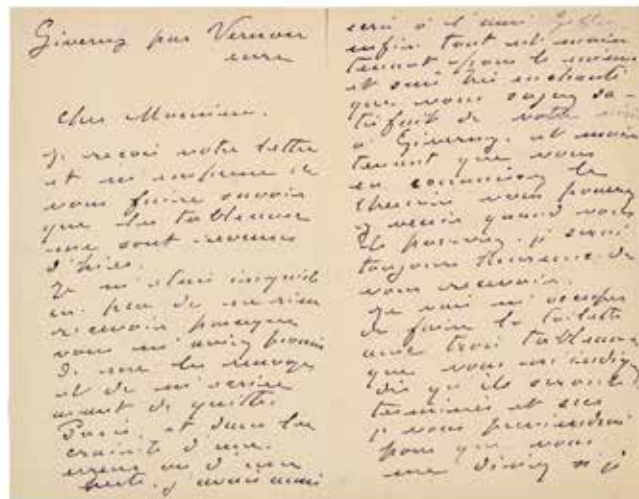 Giverny par Vernon
eure
cher Monsieur.
Je reçois votre lettre
et m'empresse de
vous faire savoir
que les tableaux
me sont revenus
d'hier.
Je m'étais inquiété
un peu de ne rien
recevoir puisque
vous m'aviez promis
de me les renvoyer
et de m'écrire
avant de quitter
Paris, et dans la
crainte d'une
erreur ou d'une
perte, j'avais aussi
écrit à l'ami
enfin tout est main
tenant pour le mieux
et suis très enchanté
que vous soyez sa-
tisfait de votre
à Giverny, et main
tenant que vous
en connaissez le
chemin vous pouvez
y venir quand vous
le pourrez, je serai
toujours heureux de
vous recevoir.
Je vais m'occuper
de faire la toilette
aux trois tableaux
que vous m'indiquez
dès qu'ils seront
terminés et secs
je vous préviendrai
pour que vous
me disiez si je